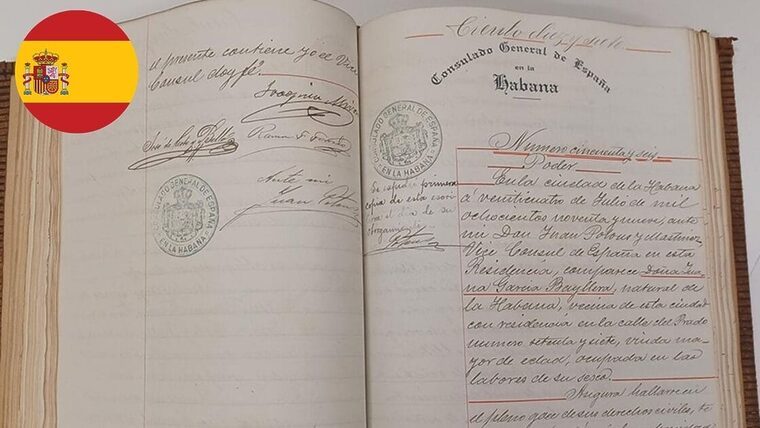 el presente contiene yo el Vice
Consul doy fé.
Joaquin
José de
Ramon F.
Ante mi
Juan
CONSULADO GENERAL DE ESPAÑA
EN LA HABANA
Ciento diez y siete
Consulado General de España
en la
Habana
CONSULADO GENERAL DE ESPAÑA
EN LA HABANA
Se expidió primera
copia de esta escri
tura el dia de su
otorgamiento
Numero cincuenta y seis
Poder
En la ciudad de la Habana
á veinticuatro de Julio de mil
ochocientos noventa y nueve, ante
mi Don Juan Potous y Martinez
Vice Consul de España en esta
Residencia, comparece Doña Jua
na Garcia Bayllera, natural de
la Habana, vecina de esta ciudad
con residencia en la calle del Prado
numero setenta y siete, viuda ma
yor de edad, ocupada en las
labores de su sexo.
Asegura hallarse en
el pleno que de sus derechos civiles, te